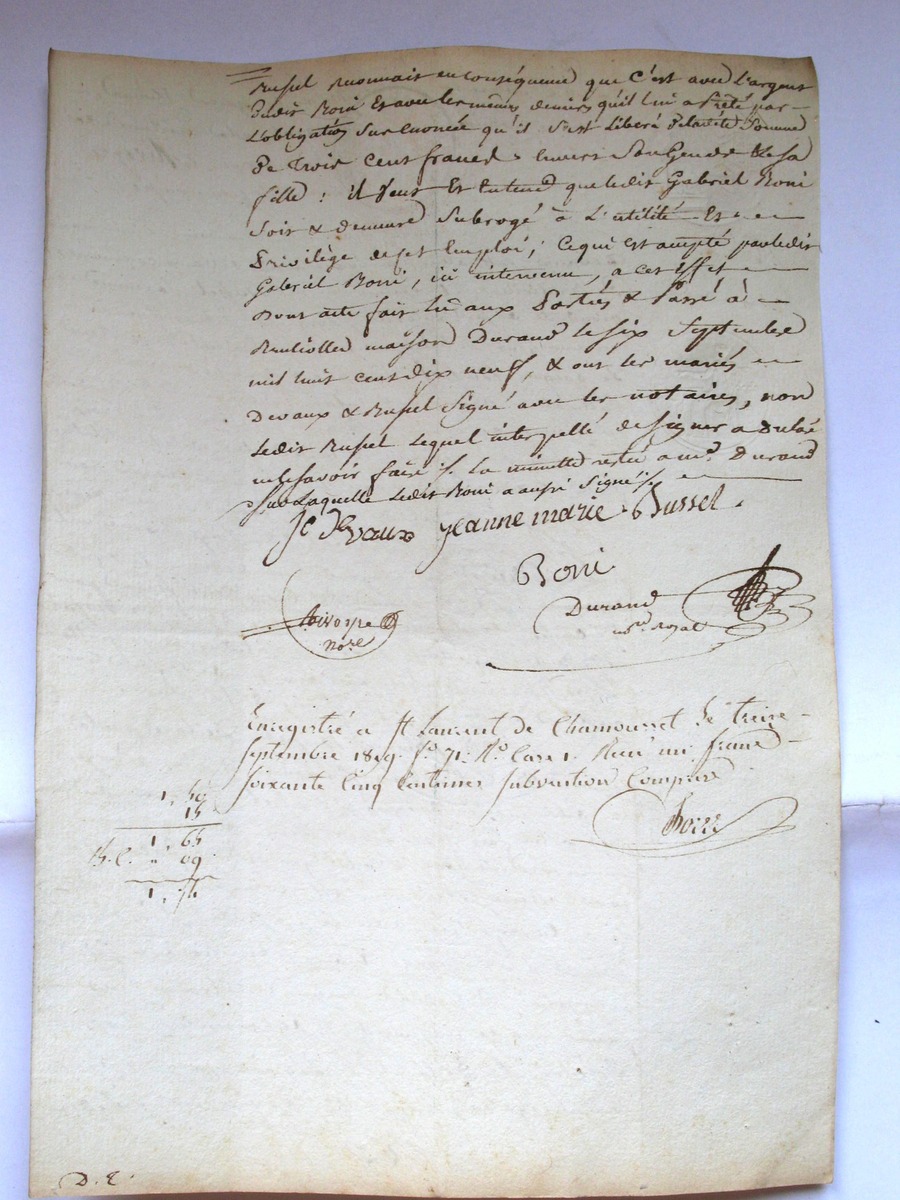 Bussel Reconnait en conséquence que c'est avec l'argent
dudit Boni Et avec les mêmes deniers qu'il lui a Prêté par
L'obligation Sus énoncée qu'il s'est Libéré de la dte Somme
De Trois cent francs envers Son Gendre & sa
fille : il veut Et Entend que ledit Gabriel Boni
Soit & demeure Subrogé à L'utilité Et
Privilège de cet Emploi ; Ce qui est accepté par ledit
Gabriel Boni, ici intervenu, a cet Effet
Dont acte fait Lû aux Parties & Passé à
maison Durand le six Septembre
mil huit cent dix neuf, & ont les mariés
Devaux & Bussel Signé avec les notaires, non
Ledit Bussel Lequel interpellé de signer a Déclaré
ne le savoir faire /. La minutte resté a me. Durand
Sur Laquelle Ledit Boni a aussi Signé /.
Jc Devaux Jeanne marie Bussel.
Boni
Durand
nore. Royal
Nore
Enregistré a St Laurent de Chamousset Le treize
Septembre 1819. fo. 71. Ro. Case 1. Reçu un franc
Soixante Cinq Centimes Subvention Comprise
1, 50
15
1, 65
" 09
1, 74
D. E.